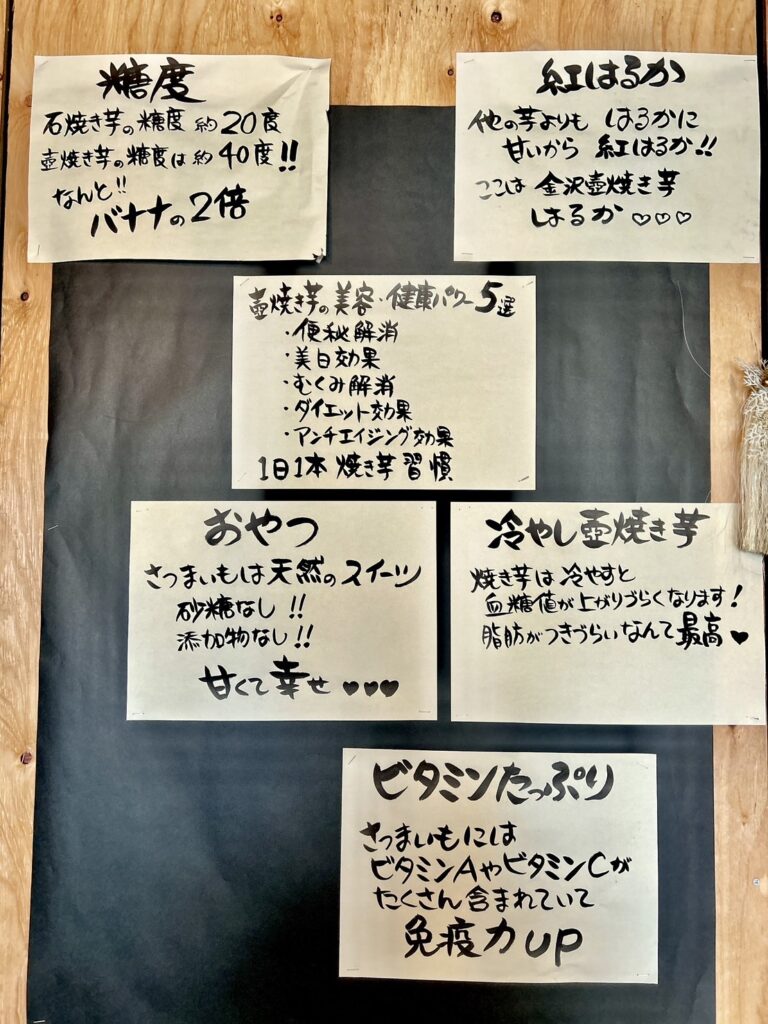 糖度
石焼き芋の糖度 約20度
壺焼き芋の糖度は約40度!!
なんと!!
バナナの2倍
紅はるか
他の芋よりも はるかに
甘いから 紅はるか!!
ここは 金沢壺焼き芋
はるか ♡♡♡
壺焼き芋の美容・健康パワー5選
・便秘解消
・美白効果
・むくみ解消
・ダイエット効果
・アンチエイジング効果
1日1本 焼き芋習慣
おやつ
さつまいもは天然のスイーツ
砂糖なし!!
添加物なし!!
甘くて幸せ♥♥♥
冷やし壺焼き芋
焼き芋は冷やすと
血糖値が上がりづらくなります!
脂肪がつきづらいなんて最高♥
ビタミンたっぷり
さつまいもには
ビタミンAやビタミンCが
たくさん含まれていて
免疫力UP